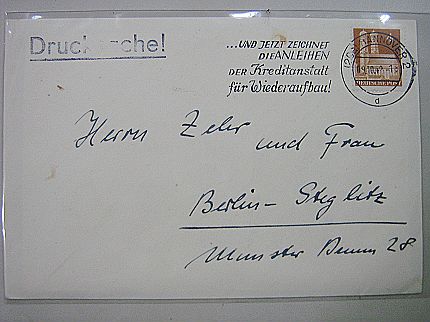 Drucksache!
...UND JETZT ZEICHNET
DIE ANLEIHEN
DER Kreditanstalt
für Wiederaufbau!
HANNOVER 2
d
DEUTSCHE POST
Herrn Zeler und Frau
Berlin-Steglitz
Munster Damm 28